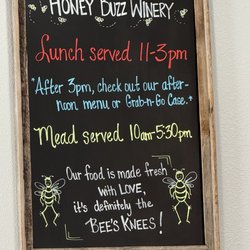 HONEY BUZZ WINERY
Lunch served 11-3pm
*After 3pm, check out our after-
noon menu or Grab-n-Go Case.*
Mead served 10am-5:30pm
Our food is made fresh
with LOVE,
it's definitely the
BEE'S KNEES!